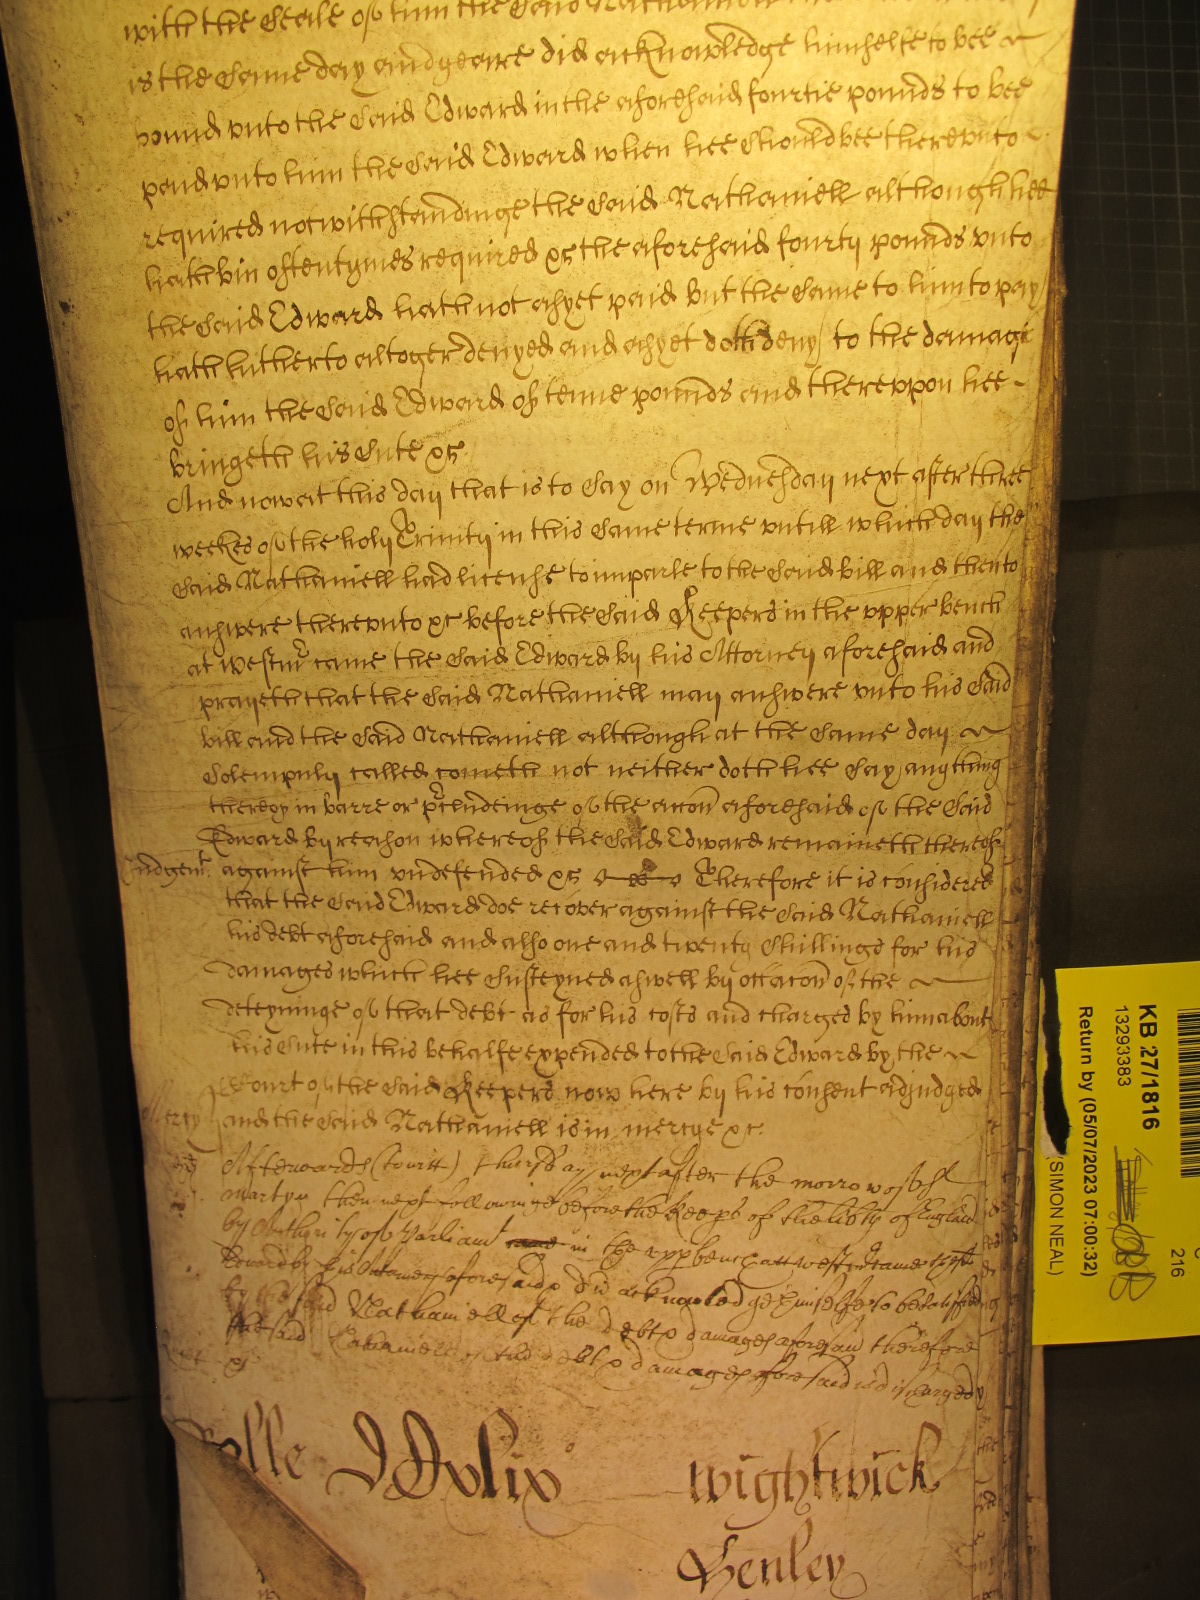 with the Seale of him the said Nathaniell
is the same day and yeare did acknowledge himselfe to bee
bound unto the said Edward in the aforesaid fourtie pounds to bee
paid unto him the said Edward when hee should bee thereunto
required notwithstandinge the said Nathaniell although hee
hath bin oftentymes required &c the aforesaid fourty pounds unto
the said Edward hath not as yet paid but the same to him to pay
hath hitherto altoger denyed and as yet doth deny to the damage
of him the said Edward of tenne pounds and thereuppon hee
bringeth his sute &c
And now at this day that is to say on Wednesday next after three
weekes of the holy Trinity in this same terme untill which day the
said Nathaniell had license to imparle to the said bill and then to
answere thereunto &c before the said Keepers in the upper bench
at Westmr came the said Edward by his Attorney aforesaid and
prayeth that the said Nathaniell may answere unto his said
bill and the said Nathaniell although at the same day
solempnly called cometh not neither doth hee say anything
thereof in barre or preludeinge of the accon aforesaid of the said
Edward By reason whereof the said Edward remaineth thereof
Judgemt. against him undefended &c Therefore it is considered
that the said Edward doe recover against the said Nathaniell
his debt aforesaid and also one and twenty shillings for his
damages which hee susteyned aswell by occacon of the
deteyninge of that debt as for his costs and charges by him about
his sute in this behalfe expended to the said Edward by the
Court of the said Keepers now here by his consent adjudged
Mercy and the said Nathaniell is in mercye &c.
Afterwards (towitt) thursday next after the morrow of St
Martyn then next followinge before the Keeps of the libty of England
by Authority of Parliamt in the upp bench att Westmr came the sd
Edward by his Attorney aforesaid & did acknowledge himselfe to be satisfied
by the said Nathaniell of the debt & damages aforesaid therefore
the said Nathaniell of the debt & damages aforesaid is discharged
&c
Rolle MDCxlix wightwick
Henley
KB 27/1816
13293383
Return by (05/07/2023 07:00:32)
(SIMON NEAL)
216